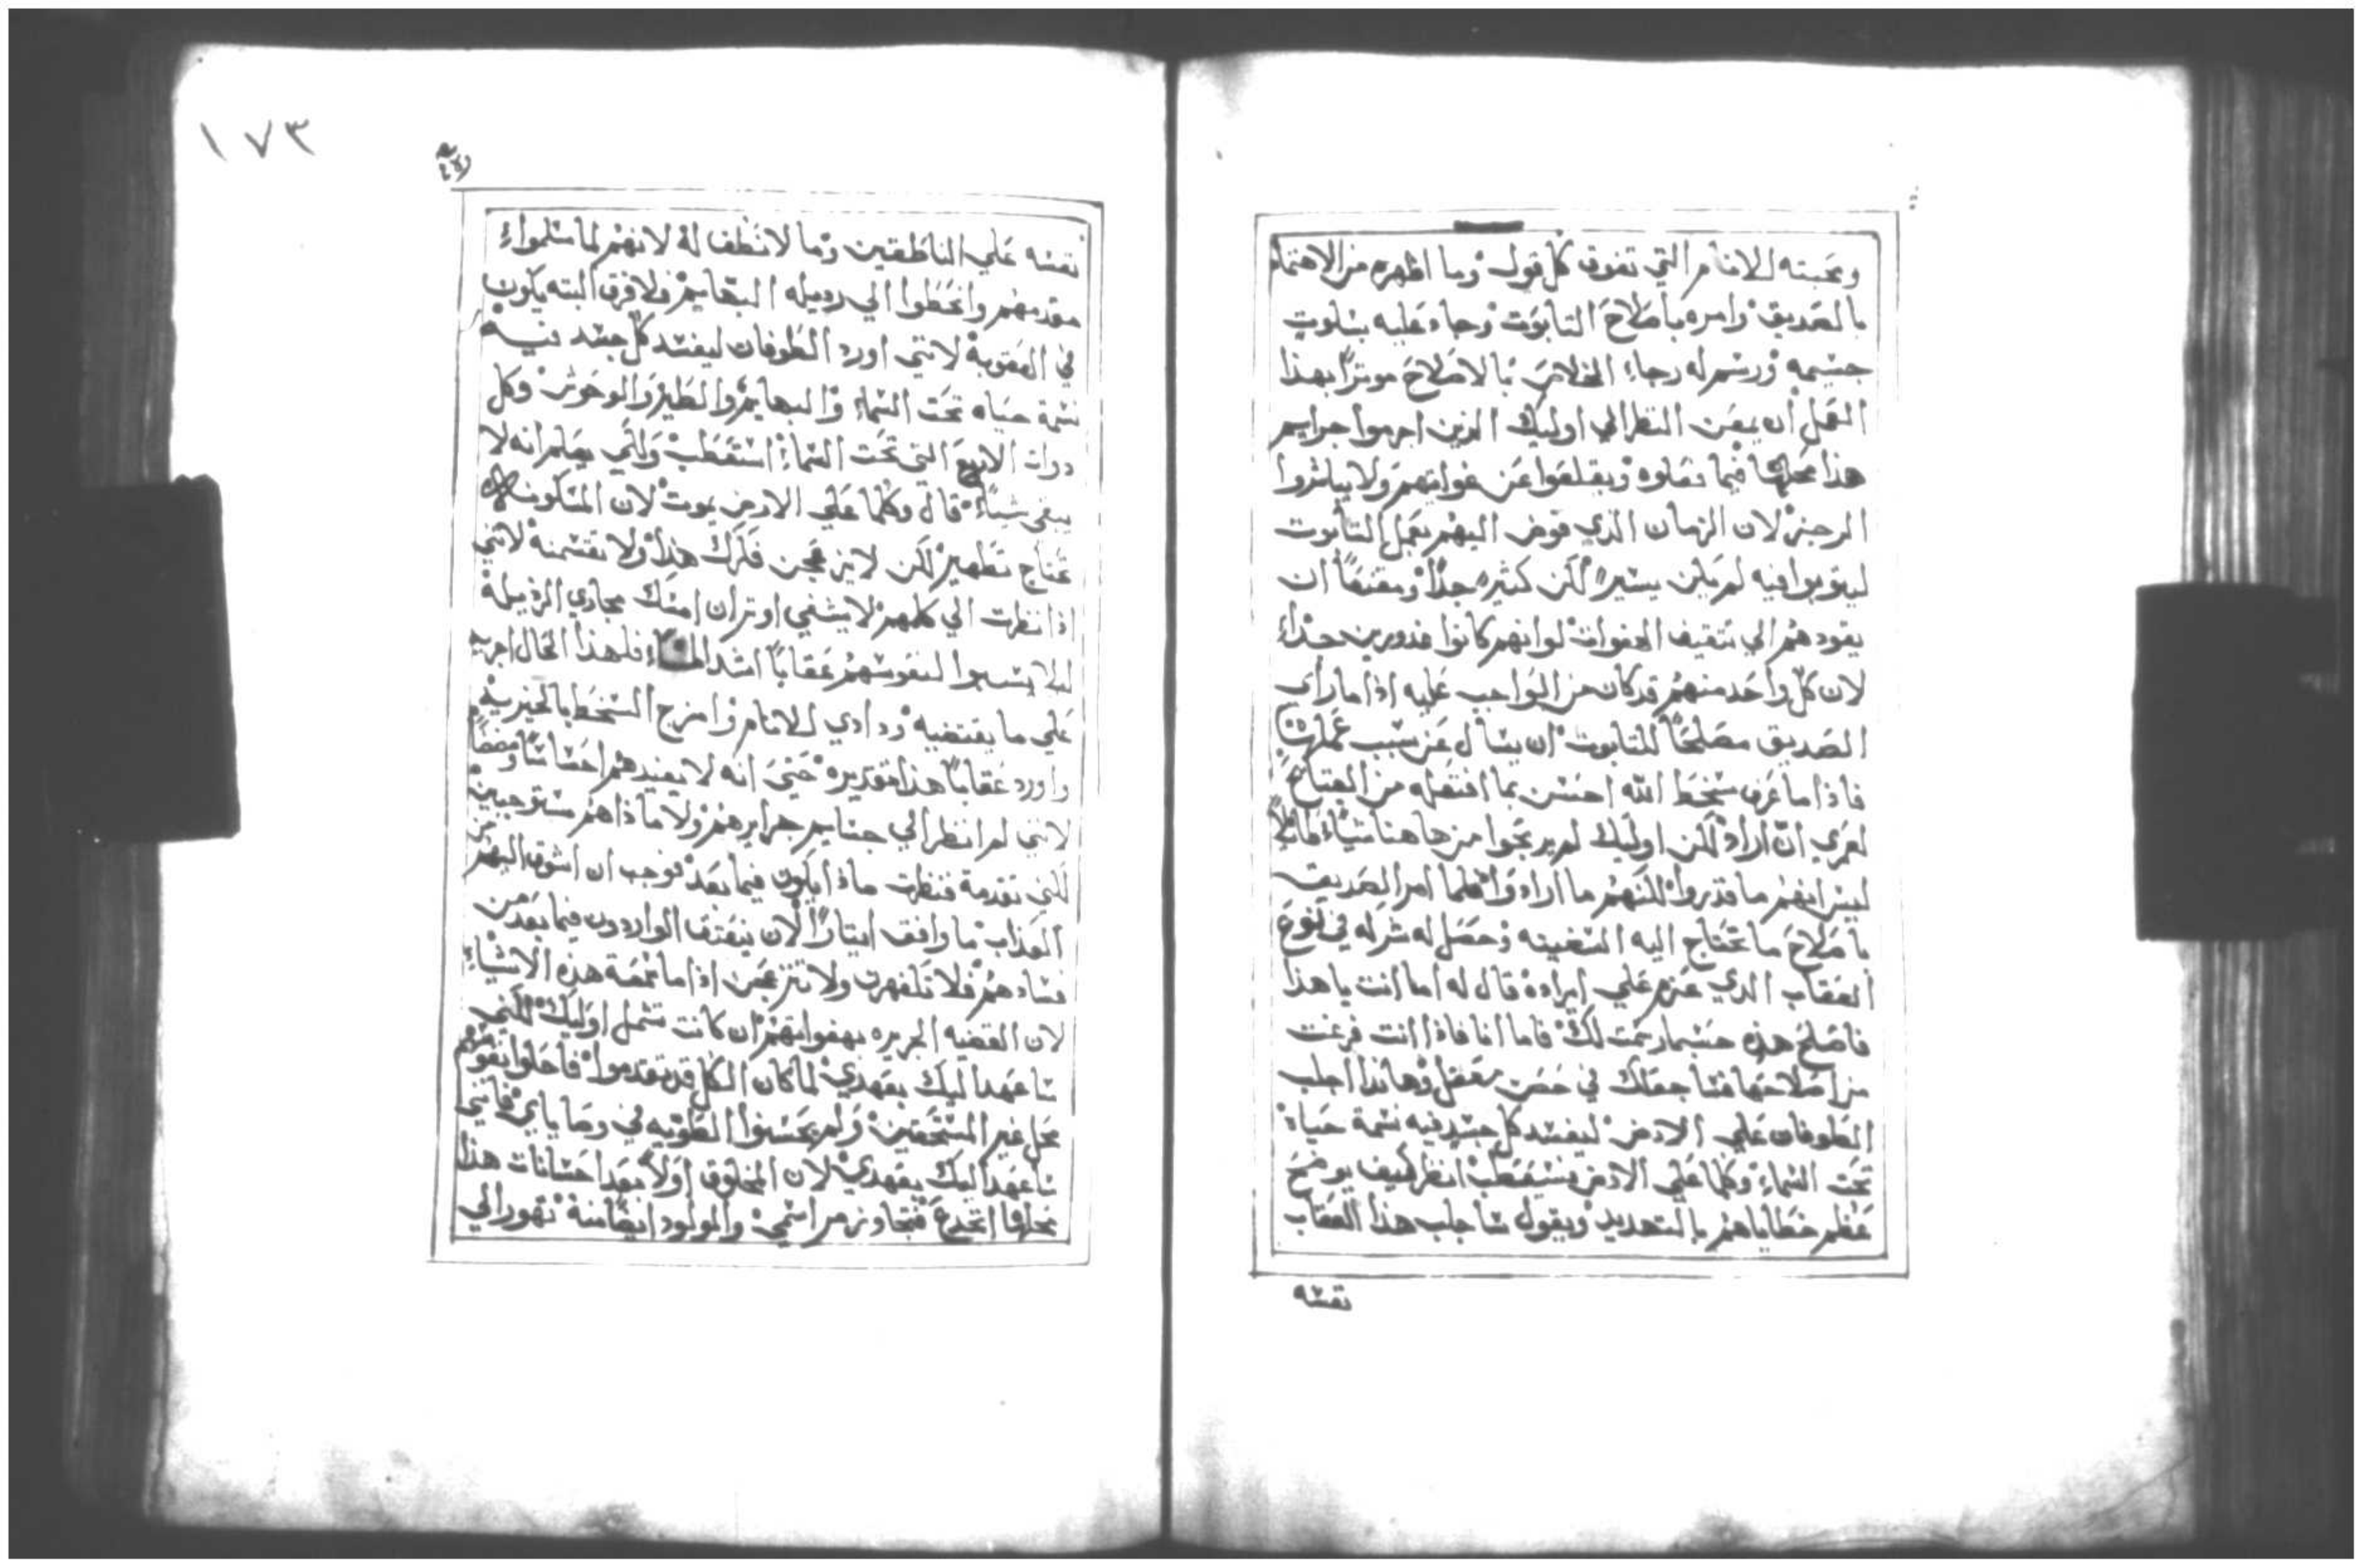 ومحبته للانام التي تفوق كل قول وما اظهره من الاهتمام
بالصديق وامره باصلاح التابوت وجاء عليه بتلوت
جسيمه ورسم له رجاء الخلاص بالاصلاح موثراً بهذا
الفعل ان يمعن النظر الي اوليك الذين اجرموا جرايم
هذا محلها فيما نقلوه ويقلعوا عن غوايتهم ولا يباشروا
الرجز لان الزمان الذي فوض اليهم بعمل التابوت
ليتوبوا فيه لم يكن يسير لكن كثيره جداً ومقنعاً ان
يقودهم الي تثقيف الهفوات لوانهم كانوا فدورين جداً
لان كل واحد منهم قد كان من الواجب عليه اذا ما راى
الصديق مصلحاً للتابوت ان يسأل عن سبب عملها
فاذا ما عرف سخط الله احسن بما افتعله من القبايح
لعمري ان اراد لكن اوليك لم يربحوا من هاهنا شياء قايلاً
ليس انهم ما قدروا لكنهم ما ارادوا فلما امر الصديق
باصلاح ما تحتاج اليه السفينه وحصل له شركه في نوع
العقاب الذي عزم علي ايراده قال له اما انت ياهذا
فاصلح هذه حسبما رسمت لك فاما انا فاذا انت فرغت
من اصلاحها فساجعلك في حصن معقل وهانذا اجلب
الطوفان علي الارض ليفسد كل جسد فيه نسمة حياه
تحت السماء وكلما علي الارض فسيسقط انظر كيف يوضح
عظم خطاياهم بالتهديد ويقول ساجلب هذا العقاب
نفسه
١٧٣
نفسه علي الناطقين وما لا نطف له لانهم لما سلموا
مقدمهم وانحطوا الي رديله البهايم فلا فرق البته يكون
في العقوبة لانني اورد الطوفان ليفسد كل جسد فيه
نسمة حياه تحت السماء والبهايم والطير والوحوش وكل
دوات الاربع التي تحت السماء استسقط ولكي يعلم انه لا
يبقى شياء قال وكلما علي الارض يموت لان المسكونه
تحتاج تطهير لكن لا يزعجن فكرك هذا ولا تقسمنه لانني
اذا نظرت الي كلهم لا يشفي اوثر ان امسك مجاري الرذيلة
ليلا يسببوا لنفوسهم عقاباً اشد فلهذا الحال اجريه
علي ما يقتضيه ودادي للانام وامزج السخط بالخيرية
واورد عقاباً هذا تقديره حتى انه لا يفيدهم احساسًا
لانني لم انظر الي جسايم جرايرهم ولا ماذا هم مستوجبين
لكني تقدمة فنظرت ماذا يكون فيما بعد فوجب ان اسوق اليهم
العذاب ما وافق ايثاراً لان يتقف الواردون فيما بعد من
فسادهم فلا تلفهرن ولا تنزعجن اذا ما سمعة هذه الاشياء
لان القضيه الجريره بهفواتهم ان كانت تشمل اوليك لكني
ساعهد اليك بعهدي لما كان الكل قد تقدموا فاحلوا نفوسهم
محل غير المستحقين ولم يحسنوا الطويه في وصاياي فانني
ساعهد اليك بعهدي لان المخلوق اولاً بعد احسانات هذا
محلها انخدع فتجاوز مراسمي والمولود ايضاً منه تهور الي